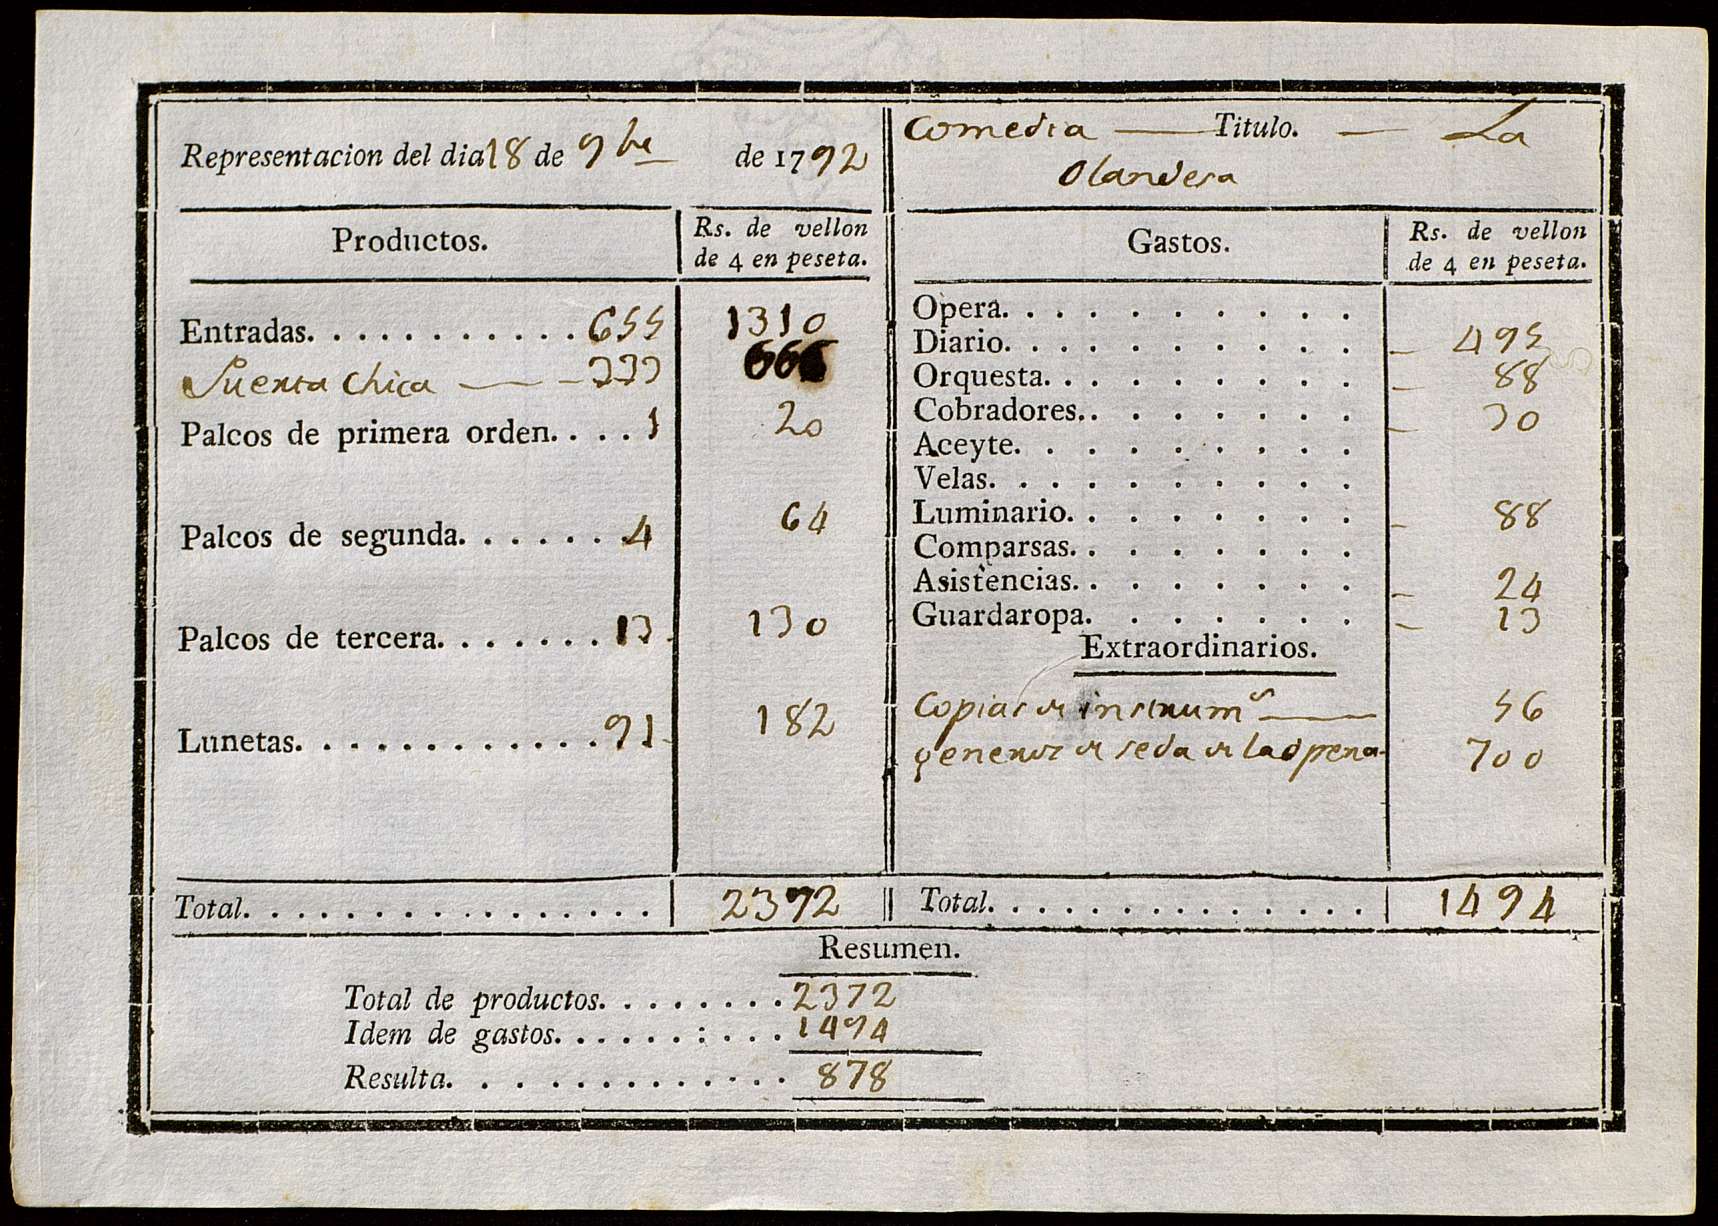 Representacion del dia 18 de 9bre de 1792
Productos. Rs. de vellon
de 4 en peseta.
Entradas. . . . . . . . . . . 655 1310
Puerta chica — 333 666
Palcos de primera orden. . . . 1 20
Palcos de segunda. . . . . . . 4 64
Palcos de tercera. . . . . . . 13 130
Lunetas. . . . . . . . . . . . . 91 182
Total. . . . . . . . . . . . . . . . . 2372
Comedia — Titulo. — La
Olandesa
Gastos. Rs. de vellon
de 4 en peseta.
Opera. . . . . . . . . .
Diario. . . . . . . . . . 495
Orquesta. . . . . . . . . 88
Cobradores. . . . . . . . 30
Aceyte. . . . . . . . .
Velas. . . . . . . . . .
Luminario. . . . . . . . 88
Comparsas. . . . . . . .
Asistencias. . . . . . . . 24
Guardaropa. . . . . . . 13
Extraordinarios.
Copias de instrumos — 56
generos de seda de la opera 700
Total. . . . . . . . . . . . . . 1494
Resumen.
Total de productos. . . . . . . . 2372
Idem de gastos. . . . . . : . . . 1494
Resulta. . . . . . . . . . . . . 878